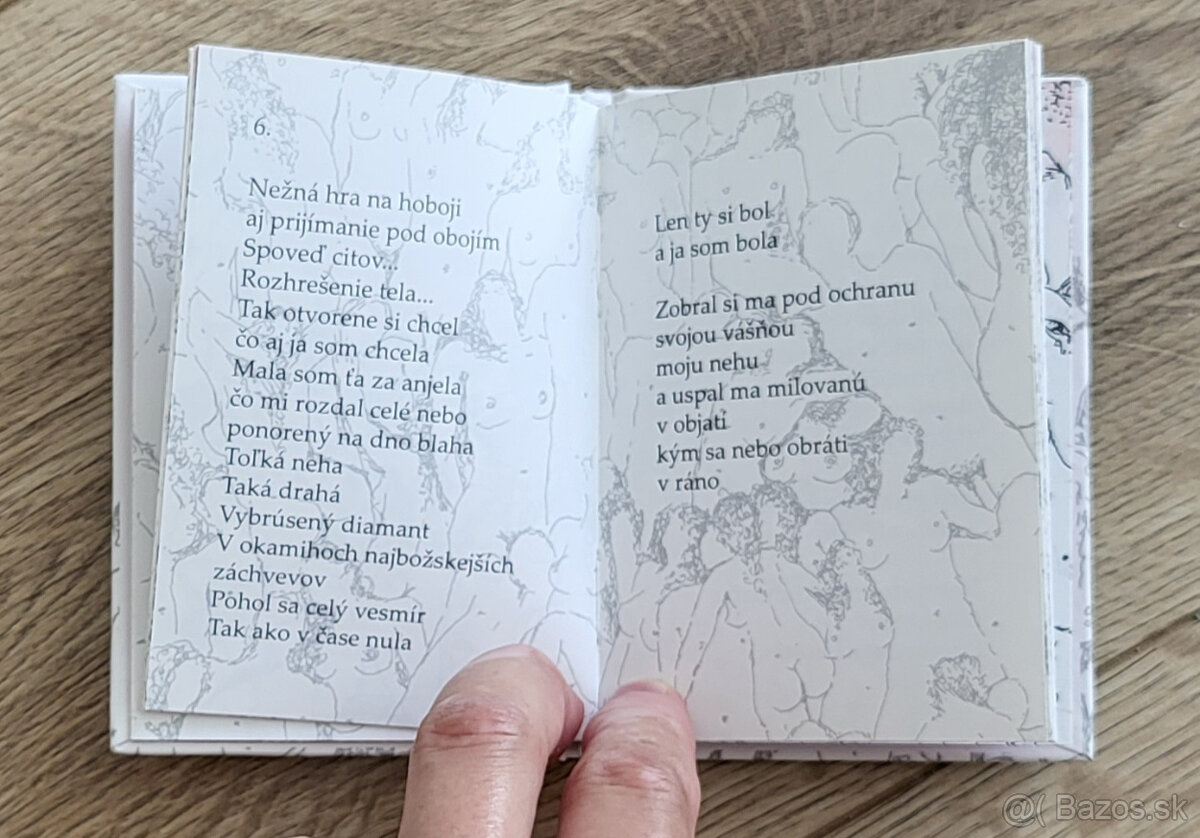 6.
Nežná hra na hoboji
aj prijímanie pod obojím
Spoveď citov...
Rozhrešenie tela...
Tak otvorene si chcel
čo aj ja som chcela
Mala som ťa za anjela
čo mi rozdal celé nebo
ponorený na dno blaha
Toľká neha
Taká drahá
Vybrúsený diamant
V okamihoch najbožskejších
záchvevov
Pohol sa celý vesmír
Tak ako v čase nula
Len ty si bol
a ja som bola
Zobral si ma pod ochranu
svojou vášňou
moju nehu
a uspal ma milovanú
v objatí
kým sa nebo obráti
v ráno
@( Bazos.sk